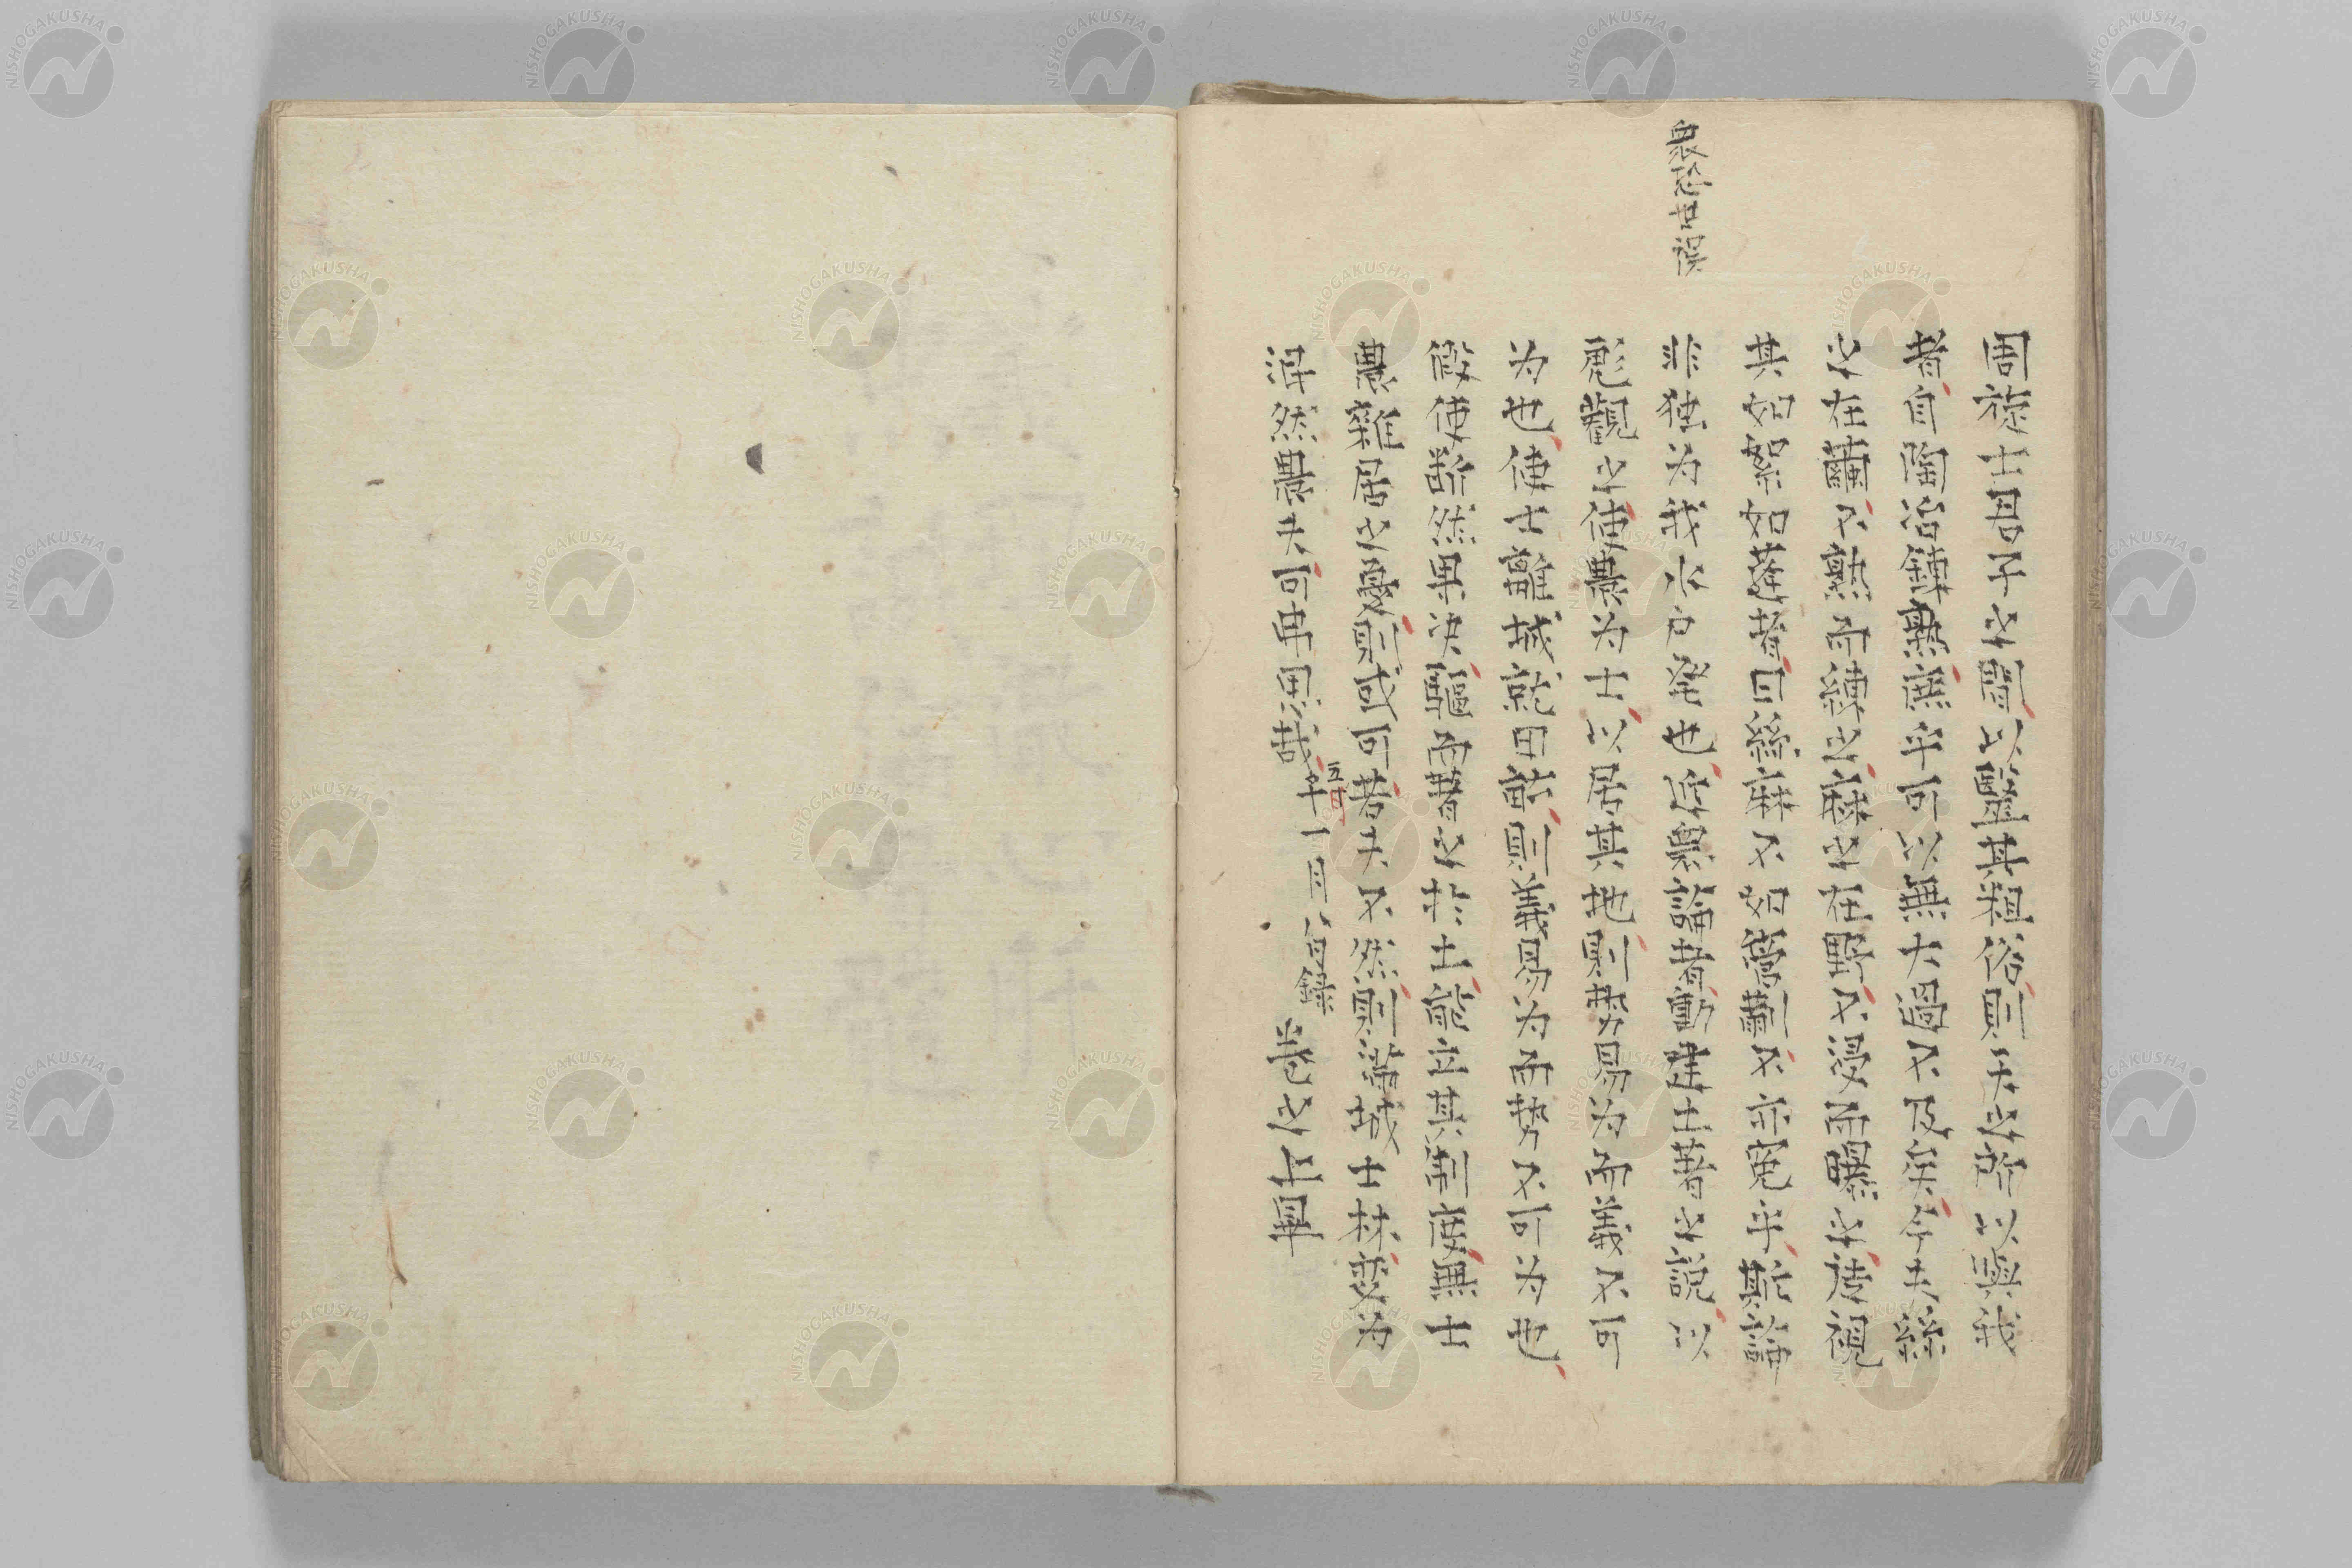 衆恐世誤
周旋士君子之間以醫其粗俗則夫之所以與我
者自陶冶庶乎可以無大過不及矣今夫絲
之在繭不熟而縛之麻之在野不浸而曝之徒視
其如絮如蓬者曰絲麻不如菅蒯不亦冤乎斯論
非独为我水戸発也近衆論者動建土著之説以
愚觀之使農为士以居其地則勢易为而義不可
为也使士離城就田畝則義易为而勢不可为也
假使断然果决驅而著之於土能立其制度無士
農雜居之憂則或可若夫不然則満城士林変为
混然農夫可再思哉 午十一月八日録 巻之上畢